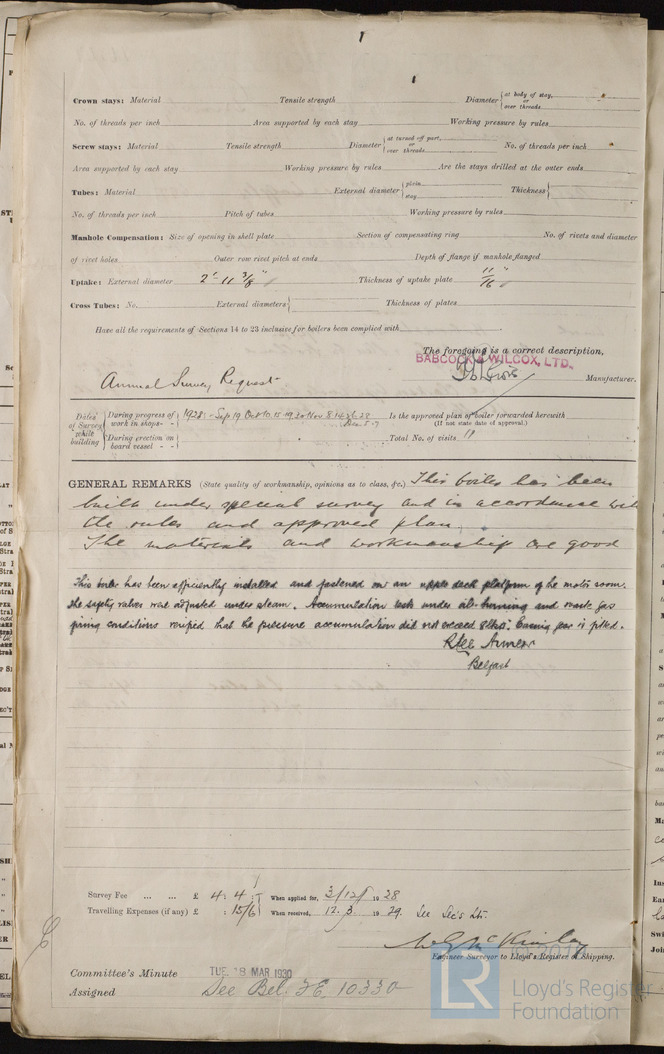 Crown stays: Material Tensile strength Diameter { at body of stay, or over threads
No. of threads per inch Area supported by each stay Working pressure by rules
Screw stays: Material Tensile strength Diameter { at turned off part, or over threads No. of threads per inch
Area supported by each stay Working pressure by rules Are the stays drilled at the outer ends
Tubes: Material External diameter { plain stay Thickness {
No. of threads per inch Pitch of tubes Working pressure by rules
Manhole Compensation: Size of opening in shell plate Section of compensating ring No. of rivets and diameter
of rivet holes Outer row rivet pitch at ends Depth of flange if manhole flanged
Uptake: External diameter 2'-11 3/8" Thickness of uptake plate 11/16"
Cross Tubes: No. External diameters { Thickness of plates
Have all the requirements of Sections 14 to 23 inclusive for boilers been complied with
The foregoing is a correct description,
BABCOCK & WILCOX, LTD.
Annual Survey Request Manufacturer.
Dates of Survey while building { During progress of work in shops - - { 1928:- Sep 19 Oct 10.15.19.30 Nov 8.14.26.28 Dec 5.7 Is the approved plan of boiler forwarded herewith
(If not state date of approval.)
During erection on board vessel - - Total No. of visits 11
GENERAL REMARKS (State quality of workmanship, opinions as to class, &c.) This boiler has been
built under special survey and in accordance with
the rules and approved plan.
The materials and workmanship are good
This boiler has been efficiently installed and fastened on an upper deck platform of the motor room.
The safety valves were adjusted under steam. Accumulation tests under oil-burning and waste gas
firing conditions verified that the pressure accumulation did not exceed Easing gear is fitted.
Belfast
Survey Fee ... ... £ 4 : 4 : When applied for, 3/12/ 1928
Travelling Expenses (if any) £ : 15/6 When received, 12.3 1929. See Sec's Ltr.
W G McKinlay
Engineer Surveyor to Lloyd's Register of Shipping.
Committee's Minute TUE. 18 MAR 1930
Assigned See Bel. F.E. 10330
LR
Lloyd's Register
Foundation